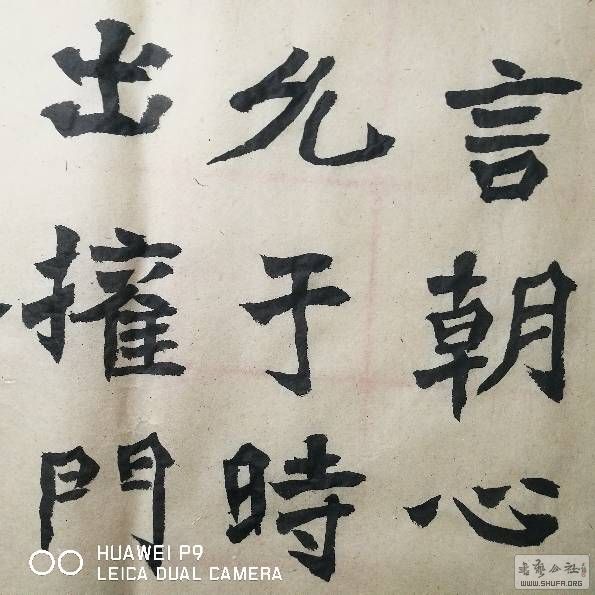 言朝心
允于時
出擁門
HUAWEI P9
LEICA DUAL CAMERA
书艺公社
WWW.SHUFA.ORG